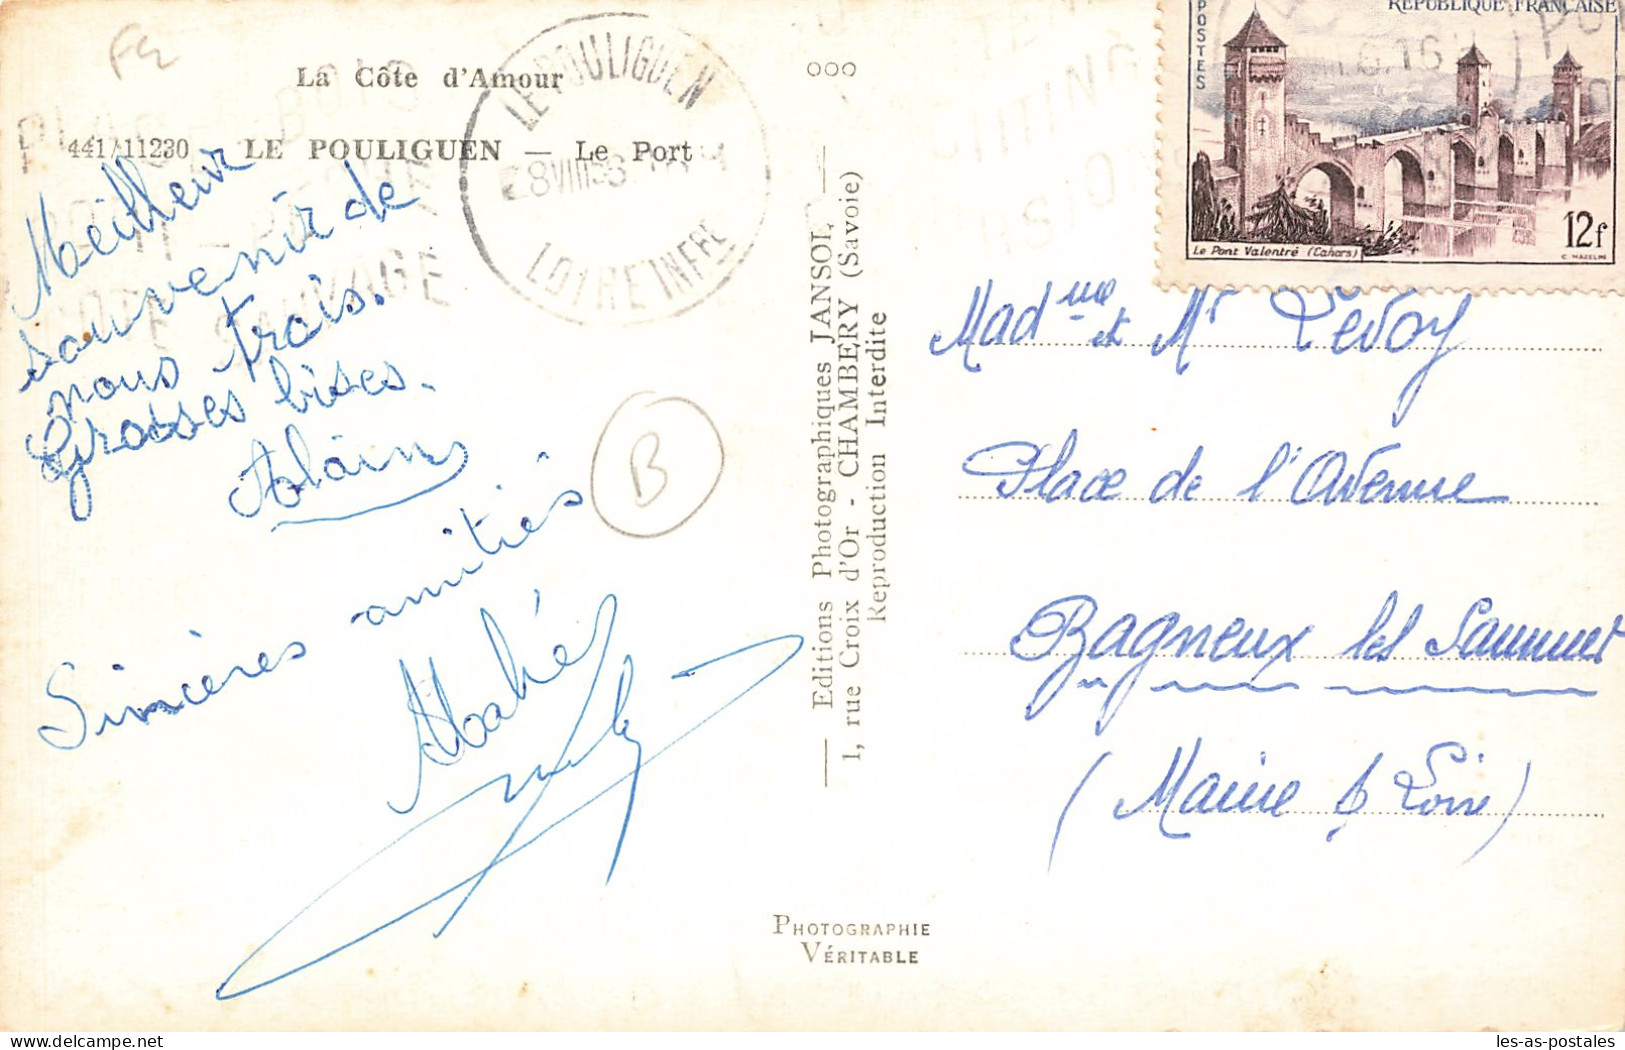 La Côte d'Amour
441/11230 LE POULIGUEN — Le Port
LE POULIGUEN
LOIRE INFRE
Meilleur
souvenir de
nous trois.
Grosses bises.
Alain
Sincères amitiés
Mahé
B
000
Editions Photographiques JANSOL
1, rue Croix d'Or - CHAMBERY (Savoie)
Reproduction Interdite
PHOTOGRAPHIE
VÉRITABLE
POSTES
REPUBLIQUE FRANÇAISE
12f
Le Pont Valentré (Cahors)
C. MAZELIN
Madme et Mr Levoy
Place de l'Avenue
Bagneux les Saumur
(Maine & Loire)
les-as-postales